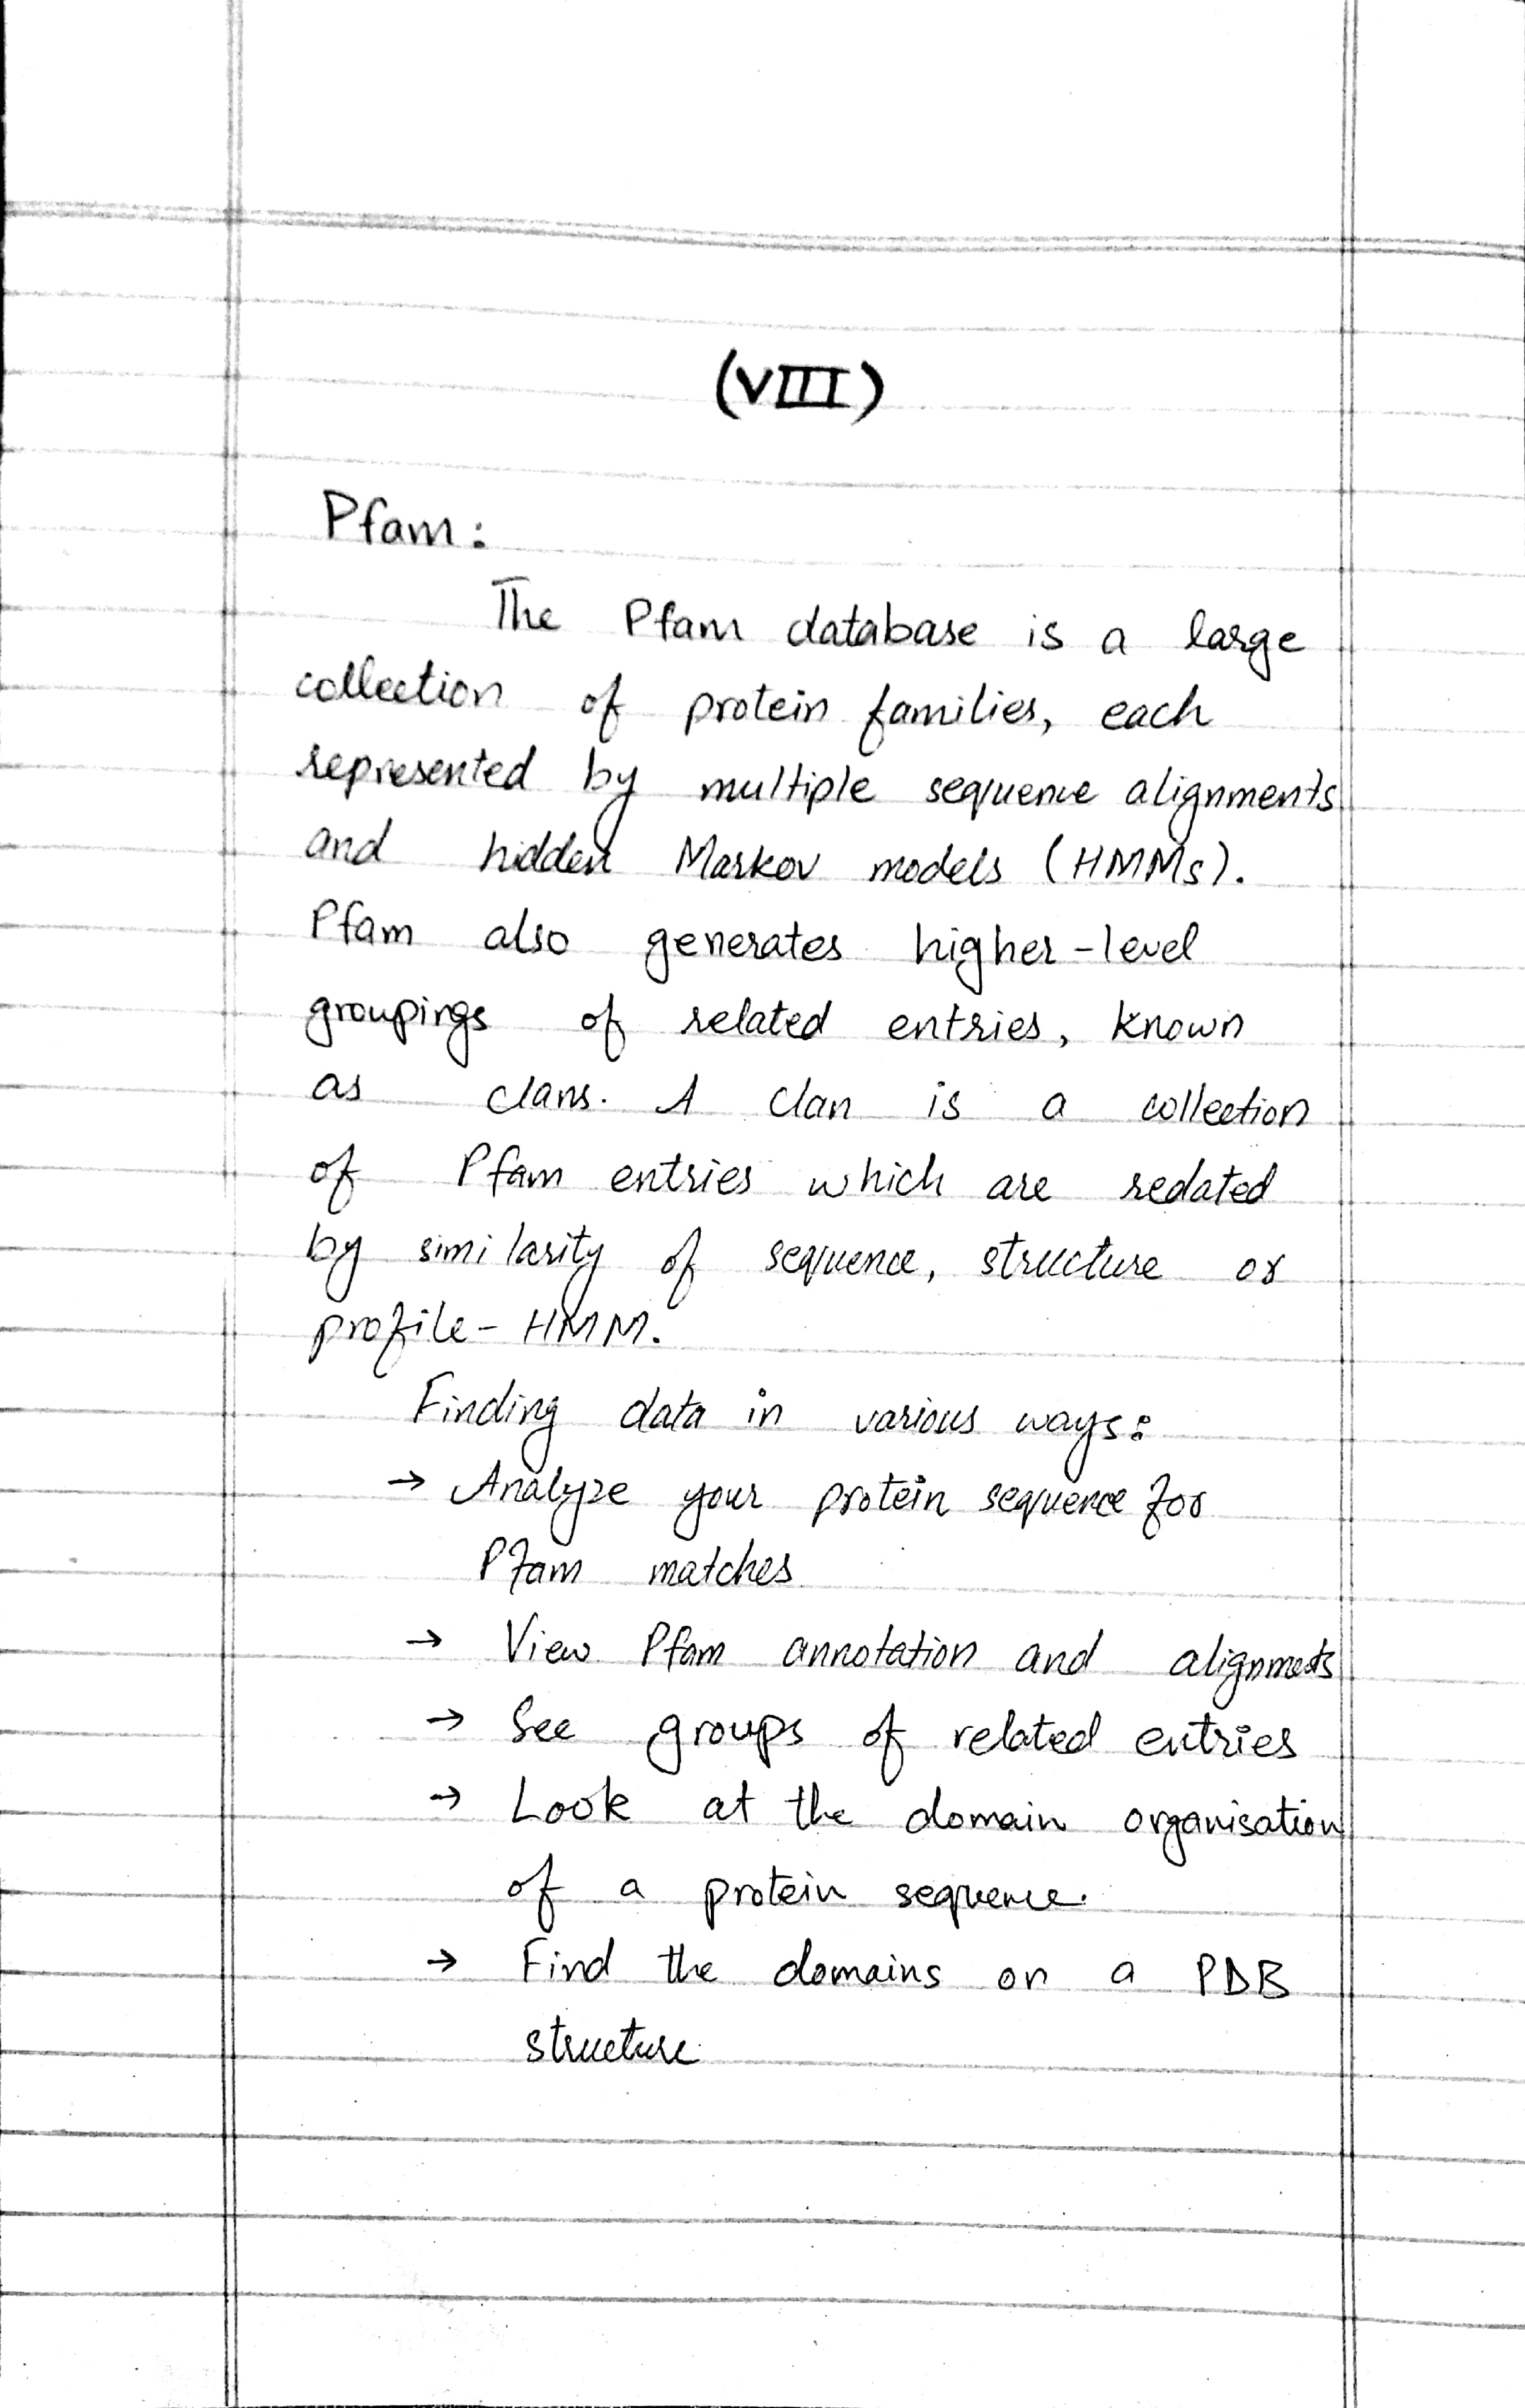 (VIII)
Pfam:
The Pfam database is a large
collection of protein families, each
represented by multiple sequence alignments
and hidden Markov models (HMMs).
Pfam also generates higher-level
groupings of related entries, known
as clans. A clan is a collection
of Pfam entries which are redated
by similarity of sequence, structure or
profile-HMM.
Finding data in various ways:
→ Analyze your protein sequence for
Pfam matches
→ View Pfam annotation and alignments
→ See groups of related entries
→ Look at the domain organisation
of a protein sequence.
→ Find the domains on a PDB
structure